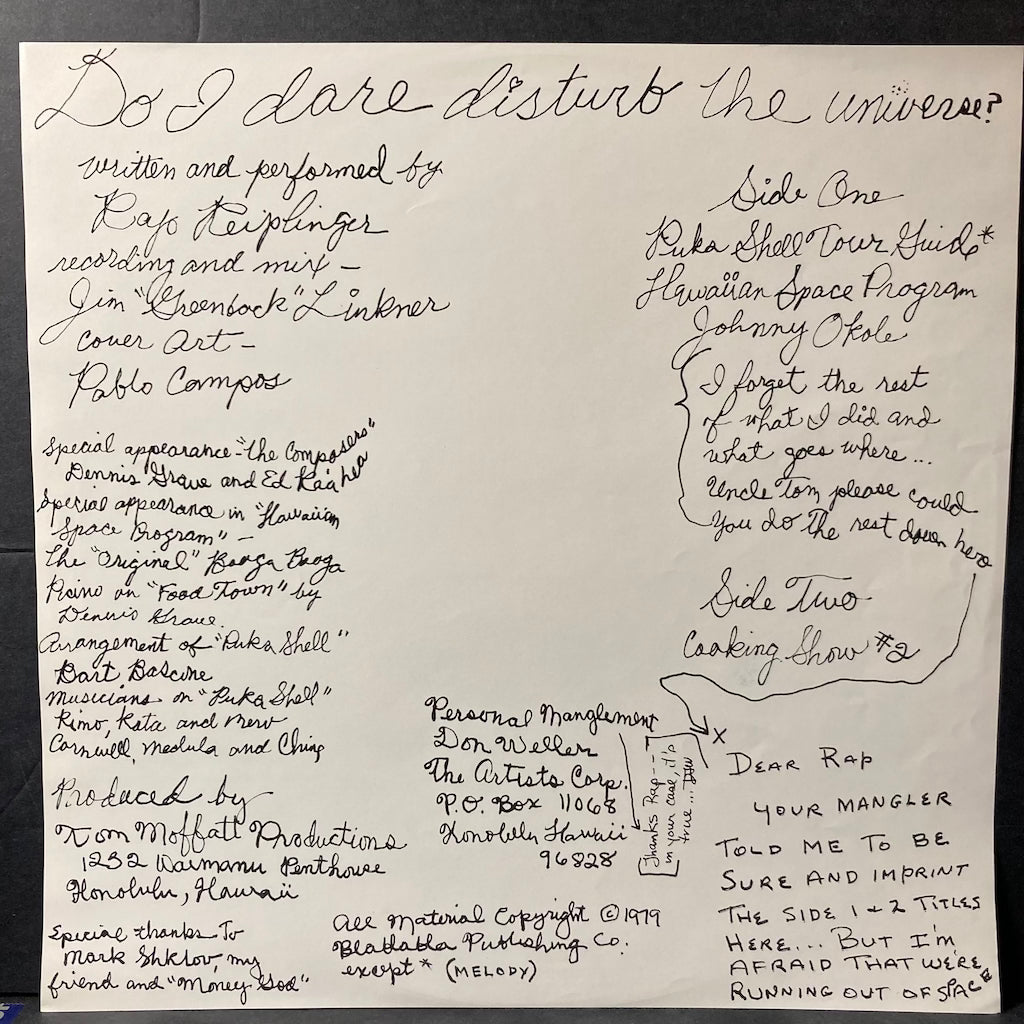 Do I dare disturb the universe?
written and performed by
Rap Reiplinger
recording and mix –
Jim "Greenback" Linkner
cover art –
Pablo Campos
Special appearance – "The Composers"
Dennis Graue and Ed Kaahea
Special appearance in "Hawaiian
Space Program" –
the "Original" Booga Booga
Piano on "Food Town" by
Dennis Graue.
Arrangement of "Puka Shell"
Bart Bascone
Musicians on "Puka Shell"
Kimo, Kata and Merv
Cornwell, Medula and Ching
Produced by
Tom Moffatt Productions
1232 Waimanu Penthouse
Honolulu, Hawaii
Special thanks to
Mark Shklov, my
friend and "Money God"
Side One
Puka Shell Tour Guide*
Hawaiian Space Program
Johnny Okole
I forget the rest
of what I did and
what goes where...
Uncle Tom please could
you do the rest down here
Side Two
Cooking Show #2
Personal Manglement
Don Weller
The Artists Corp.
P.O. Box 11068
Honolulu Hawaii
96828
Thanks Rap---
in your case, it's
true... DW
All Material Copyright © 1979
Blahblahbla Publishing Co.
except * (MELODY)
X
DEAR RAP
YOUR MANGLER
TOLD ME TO BE
SURE AND IMPRINT
THE SIDE 1 & 2 TITLES
HERE... BUT I'M
AFRAID THAT WE'RE
RUNNING OUT OF SPACE